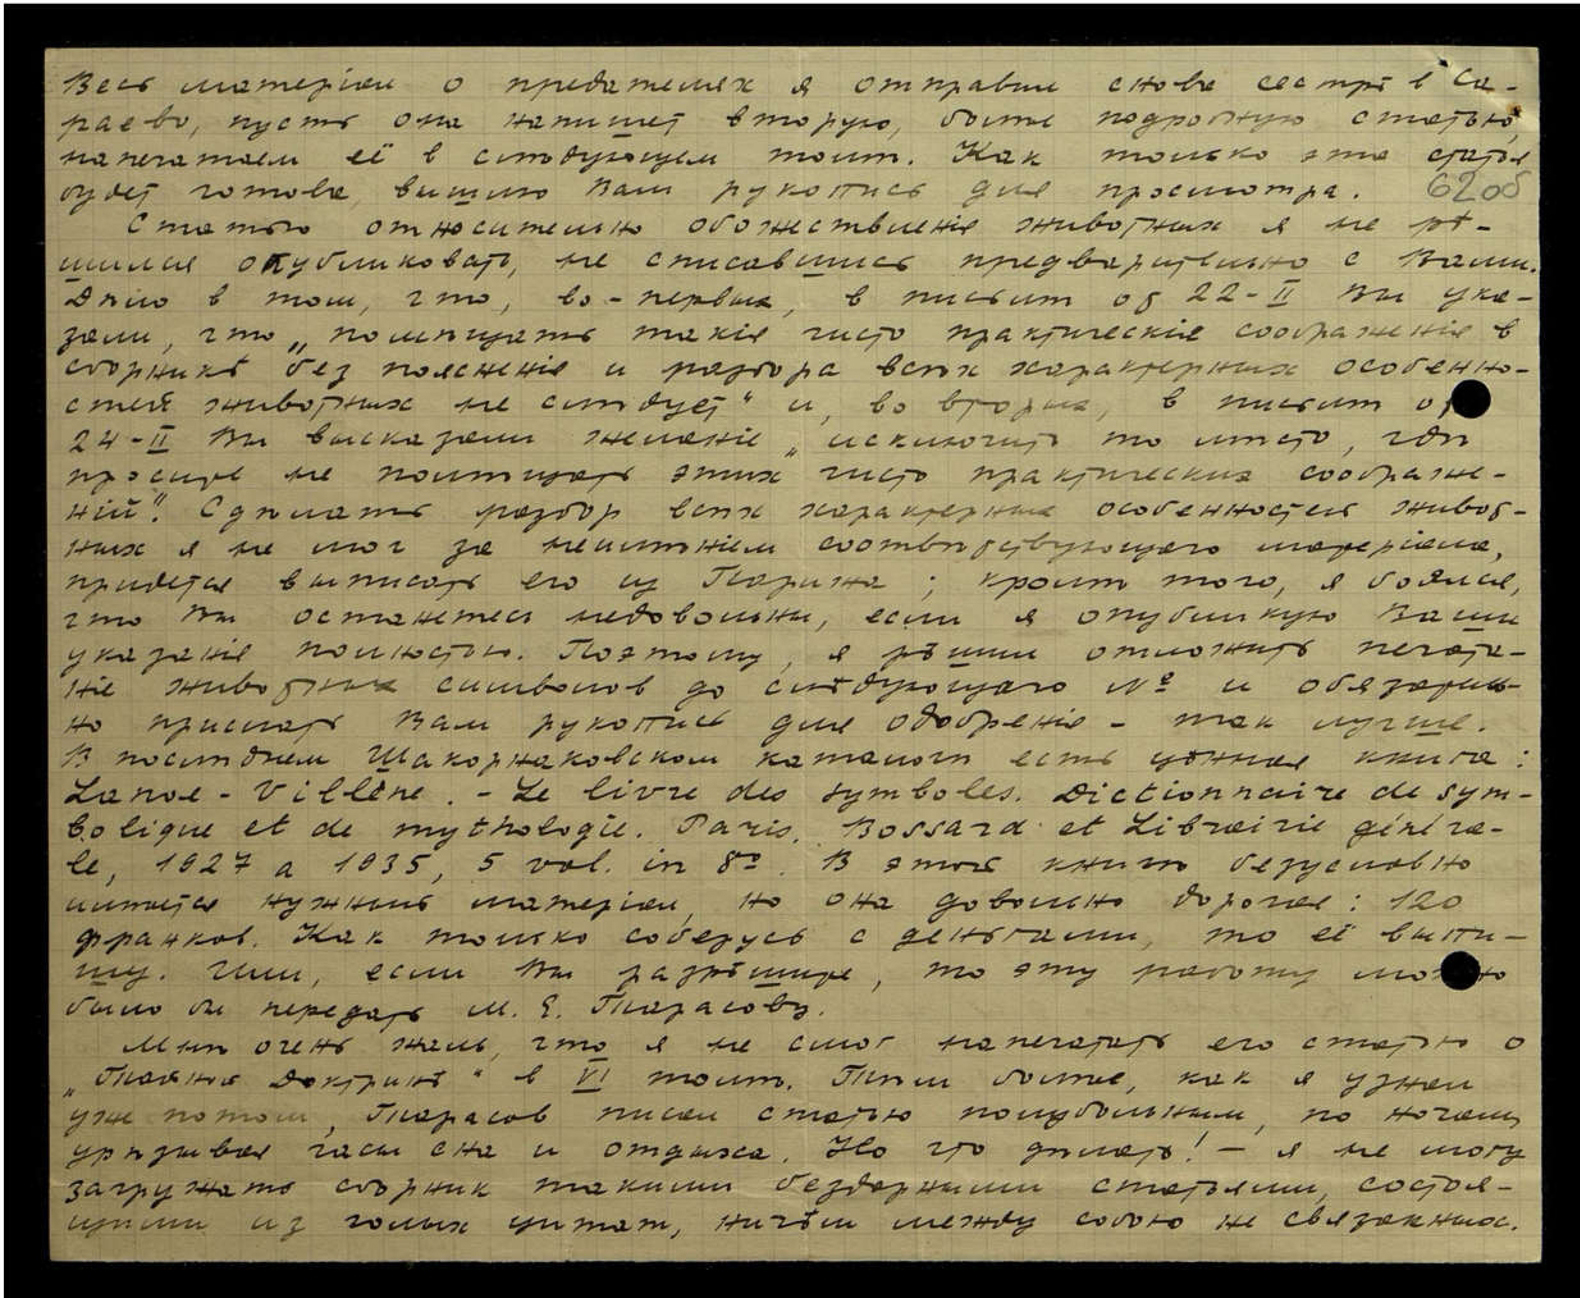 Весь матерiал о предателях я отправил снова сестрѣ в Са-
раево, пусть она напишет вторую, болѣе подробную статью,
напечатаем её в слѣдующем томѣ. Как только эта статья
будет готова, вышлю Вам рукопись для просмотра. 62об
Статью относительно обожествленiя животных я не рѣ-
шился опубликовать, не списавшись предварительно с Вами.
Дѣло в том, что, во-первых, в письмѣ от 22-II Вы ука-
зали, что „помѣщать такiя чисто практическiя соображенiя в
сборникѣ без поясненiя и разбора всѣх характерных особенно-
стей животных не слѣдует“ и, во вторых, в письмѣ от
24-II Вы высказали желанiе „исключить то мѣсто, гдѣ
просите не помѣщать этих чисто практических соображе-
нiй“. Сдѣлать разбор всѣх характерных особенностей живот-
ных я не мог за неимѣнiем соотвѣтствующаго матерiала,
придется выписать его из Парижа; кромѣ того, я боялся,
что Вы останетесь недовольны, если я опубликую Ваши
указанiя полностью. Поэтому, я рѣшил отложить печата-
нiе животных символов до слѣдующаго № и обязатель-
но прислать Вам рукопись для одобренiя - так лучше.
В послѣднем Шакорнаковском каталогѣ есть цѣнная книга:
Lanoe-Villène. - Le livre des symboles. Dictionnaire de sym-
bolique et de mythologie. Paris, Bossard et Librairie généra-
le, 1927 a 1935, 5 vol. in 8º. В этой книгѣ безусловно
имѣется нужный матерiал, но она довольно дорогая: 120
франков. Как только соберусь с деньгами, то её выпи-
шу. Или, если Вы разрѣшите, то эту работу можно
было бы передать М. Е. Тарасову.
Мнѣ очень жаль, что я не смог напечатать его статью о
„Тайной Доктринѣ“ в VI томѣ. Тѣм болѣе, как я узнал
уже потом, Тарасов писал статью полубольным, по ночам
урѣзывая часы сна и отдыха. Но что дѣлать! - я не могу
загружать сборник такими бездарными статьями, состоя-
щими из голых цитат, ничѣм между собою не связанных.